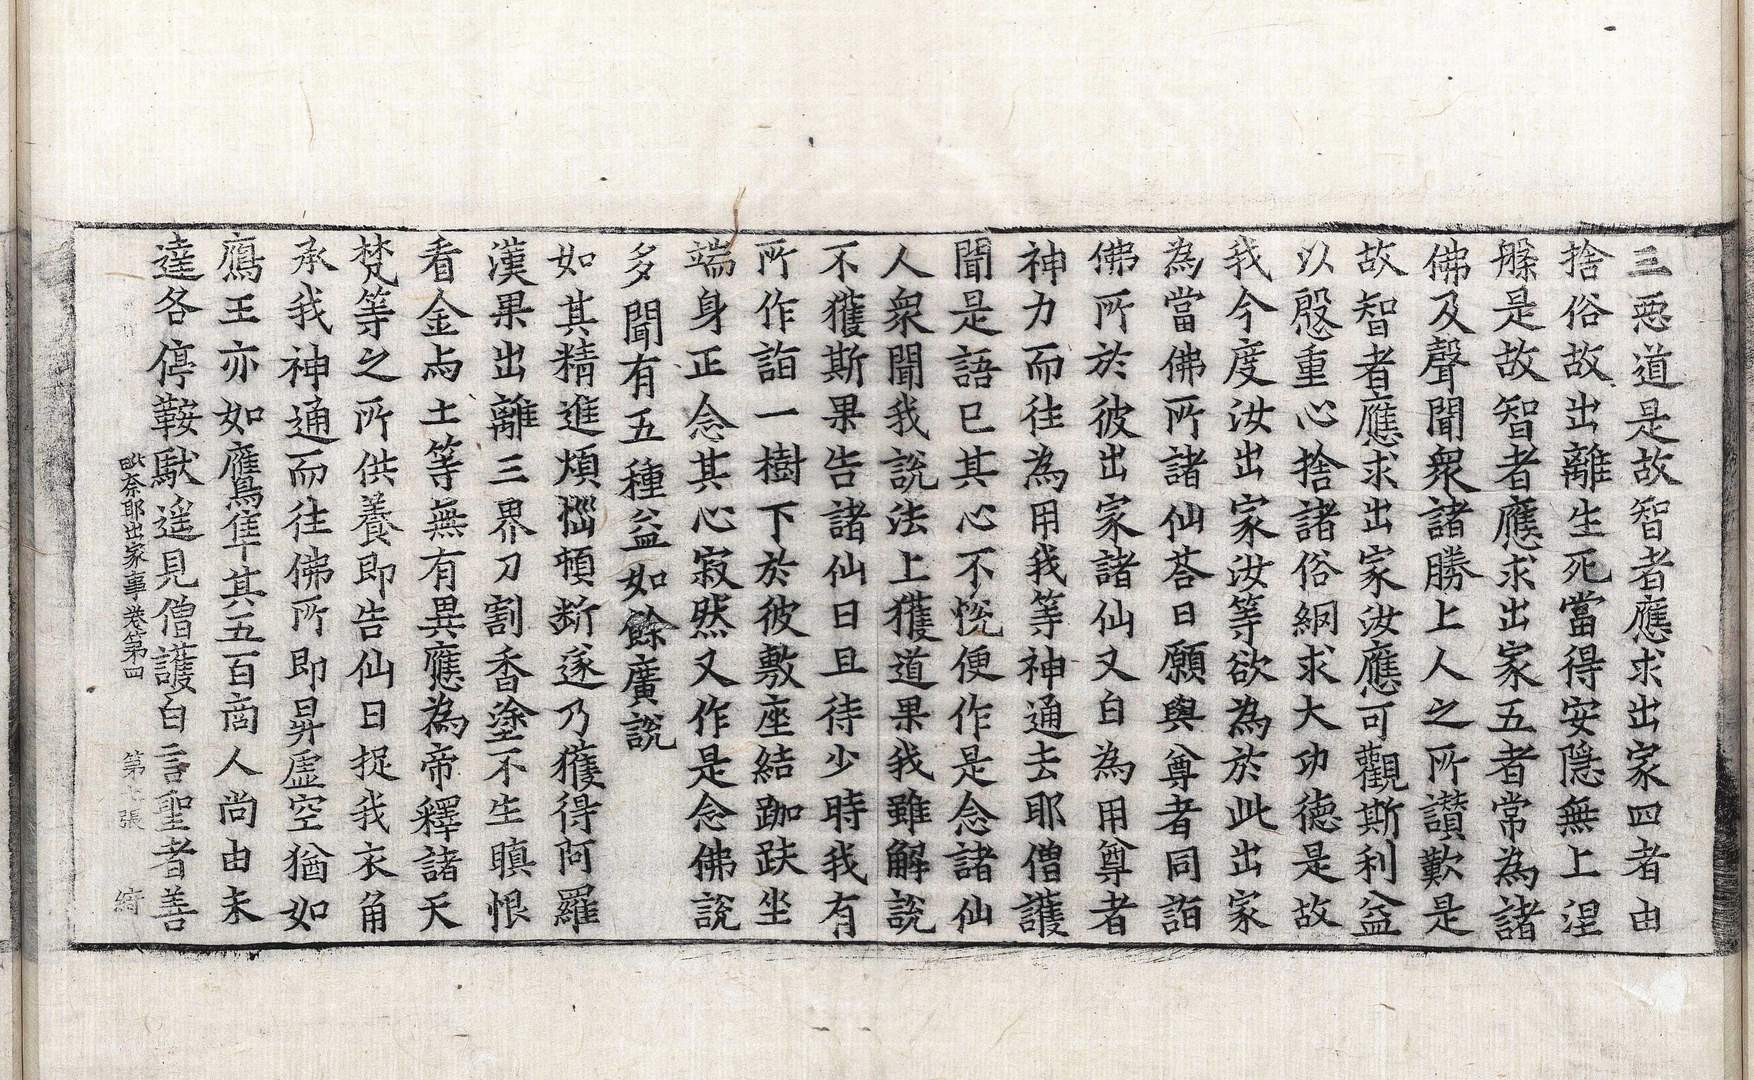 三惡道是故智者應求出家四者由
捨俗故出離生死當得安隱無上涅
槃是故智者應求出家五者常為諸
佛及聲聞衆諸勝上人之所讃歎是
故智者應求出家汝應可觀斯利益
以慇重心捨諸俗網求大功德是故
我今度汝出家汝等欲為於此出家
為當佛所諸仙荅曰願與尊者同詣
佛所於彼出家諸仙又白為用尊者
神力而往為用我等神通去耶僧護
聞是語已其心不悅便作是念諸仙
人衆聞我說法上獲道果我雖解說
不獲斯果告諸仙曰且待少時我有
所作詣一樹下於彼敷座結跏趺坐
端身正念其心寂然又作是念佛說
多聞有五種益如餘廣說
如其精進煩惱頓斷遂乃獲得阿羅
漢果出離三界刀割香塗不生瞋恨
看金与土等無有異應為帝釋諸天
梵等之所供養即告仙曰捉我衣角
承我神通而往佛所即昇虛空猶如
鴈王亦如鷹隼其五百商人尚由未
達各停鞍馱遥見僧護白言聖者善
毗奈耶出家事卷第四 第 張 綺